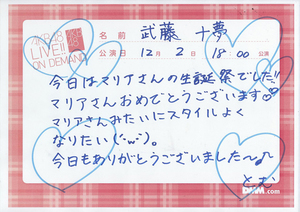 AKB48
LIVE!!
ON DEMAND
名前 武藤 十夢
公演日 12月2日 18:00公演
今日はマリアさんの生誕祭でした!!
マリアさんおめでとうございます♡
マリアさんみたいにスタイルよく
なりたい(´･ω･`)。
今日もありがとうございました〜♪
とむ
DMM.com